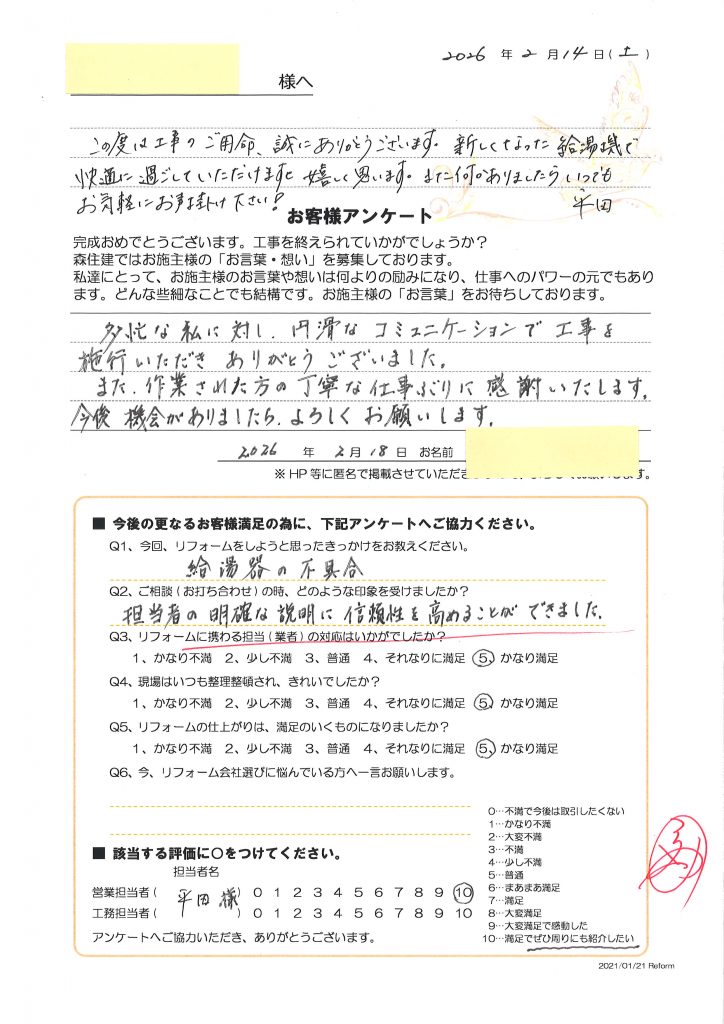 2026 年 2 月 14 日(土)
様へ
この度は工事のご用命、誠にありがとうございます。新しくなった給湯機で
快適に過ごしていただけますと嬉しく思います。また何かありましたらいつでも
お気軽にお声掛け下さい! 平田
お客様アンケート
完成おめでとうございます。工事を終えられていかがでしょうか?
森住建ではお施主様の「お言葉・想い」を募集しております。
私達にとって、お施主様のお言葉や想いは何よりの励みになり、仕事へのパワーの元でもあり
ます。どんな些細なことでも結構です。お施主様の「お言葉」をお待ちしております。
多忙な私に対し、円滑なコミュニケーションで工事を
施行いただきありがとうございました。
また、作業された方の丁寧な仕事ぶりに感謝いたします。
今後機会がありましたら、よろしくお願いします。
2026 年 2 月 18 日 お名前
※HP等に匿名で掲載させていただき
■ 今後の更なるお客様満足の為に、下記アンケートへご協力ください。
Q1、今回、リフォームをしようと思ったきっかけをお教えください。
給湯器の不具合
Q2、ご相談(お打ち合わせ)の時、どのような印象を受けましたか?
担当者の明確な説明に信頼性を高めることができました。
Q3、リフォームに携わる担当(業者)の対応はいかがでしたか?
1、かなり不満 2、少し不満 3、普通 4、それなりに満足 5、かなり満足
Q4、現場はいつも整理整頓され、きれいでしたか?
1、かなり不満 2、少し不満 3、普通 4、それなりに満足 5、かなり満足
Q5、リフォームの仕上がりは、満足のいくものになりましたか?
1、かなり不満 2、少し不満 3、普通 4、それなりに満足 5、かなり満足
Q6、今、リフォーム会社選びに悩んでいる方へ一言お願いします。
■ 該当する評価に○をつけてください。
担当者名
営業担当者( 平田様 ) 0 1 2 3 4 5 6 7 8 9 10
工務担当者( ) 0 1 2 3 4 5 6 7 8 9 10
アンケートへご協力いただき、ありがとうございます。
0…不満で今後は取引したくない
1…かなり不満
2…大変不満
3…不満
4…少し不満
5…普通
6…まあまあ満足
7…満足
8…大変満足
9…大変満足で感動した
10…満足でぜひ周りにも紹介したい
2021/01/21 Reform